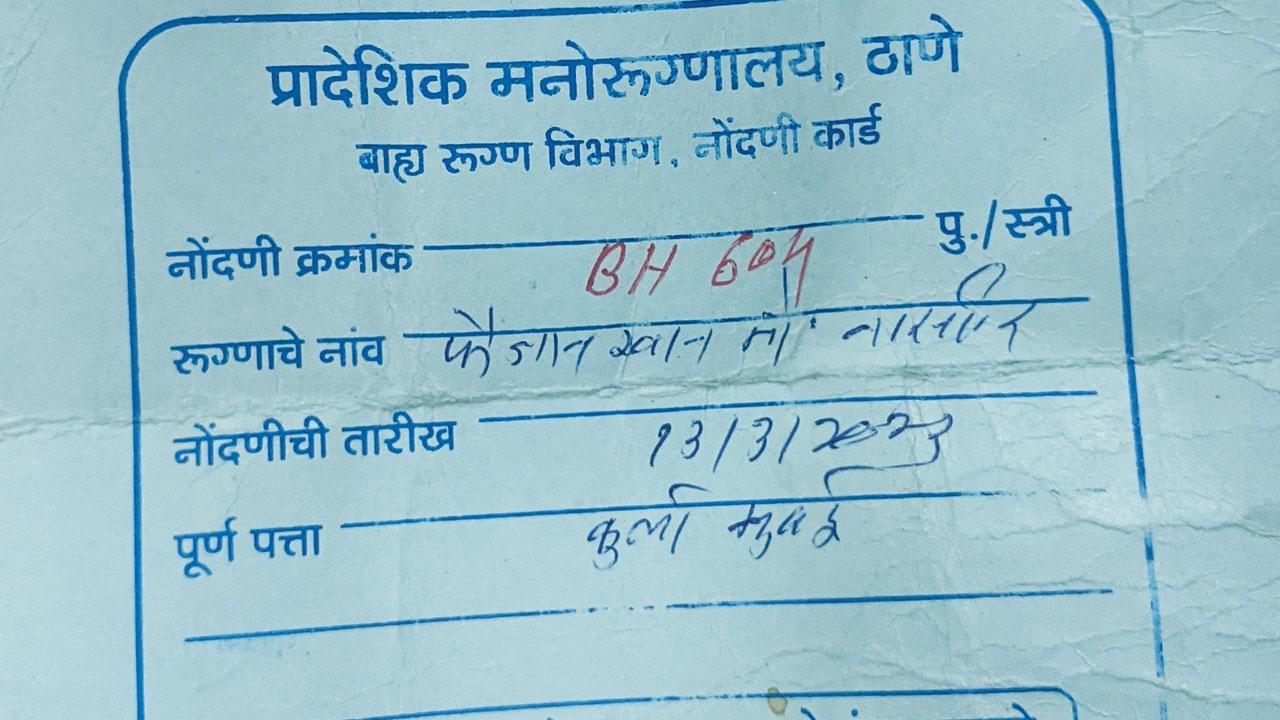 प्रादेशिक मनोरूग्णालय, ठाणे
बाह्य रूग्ण विभाग, नोंदणी कार्ड
नोंदणी क्रमांक BH 604 पु./स्त्री
रूग्णाचे नांव फैजान खान मो. नासीर
नोंदणीची तारीख 13/3/2023
पूर्ण पत्ता कुर्ला मुंबई